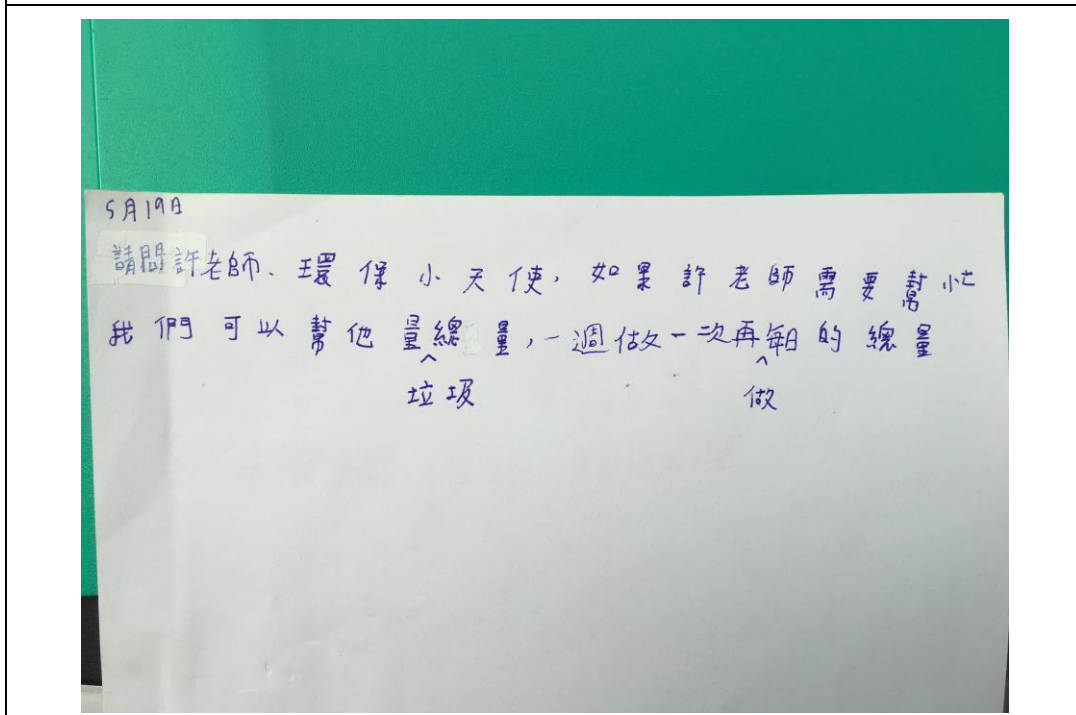 5月19日
請問許老師、環保小天使,如果許老師需要幫忙
我們可以幫他量總量,一週做一次再每日的總量
垃圾 做